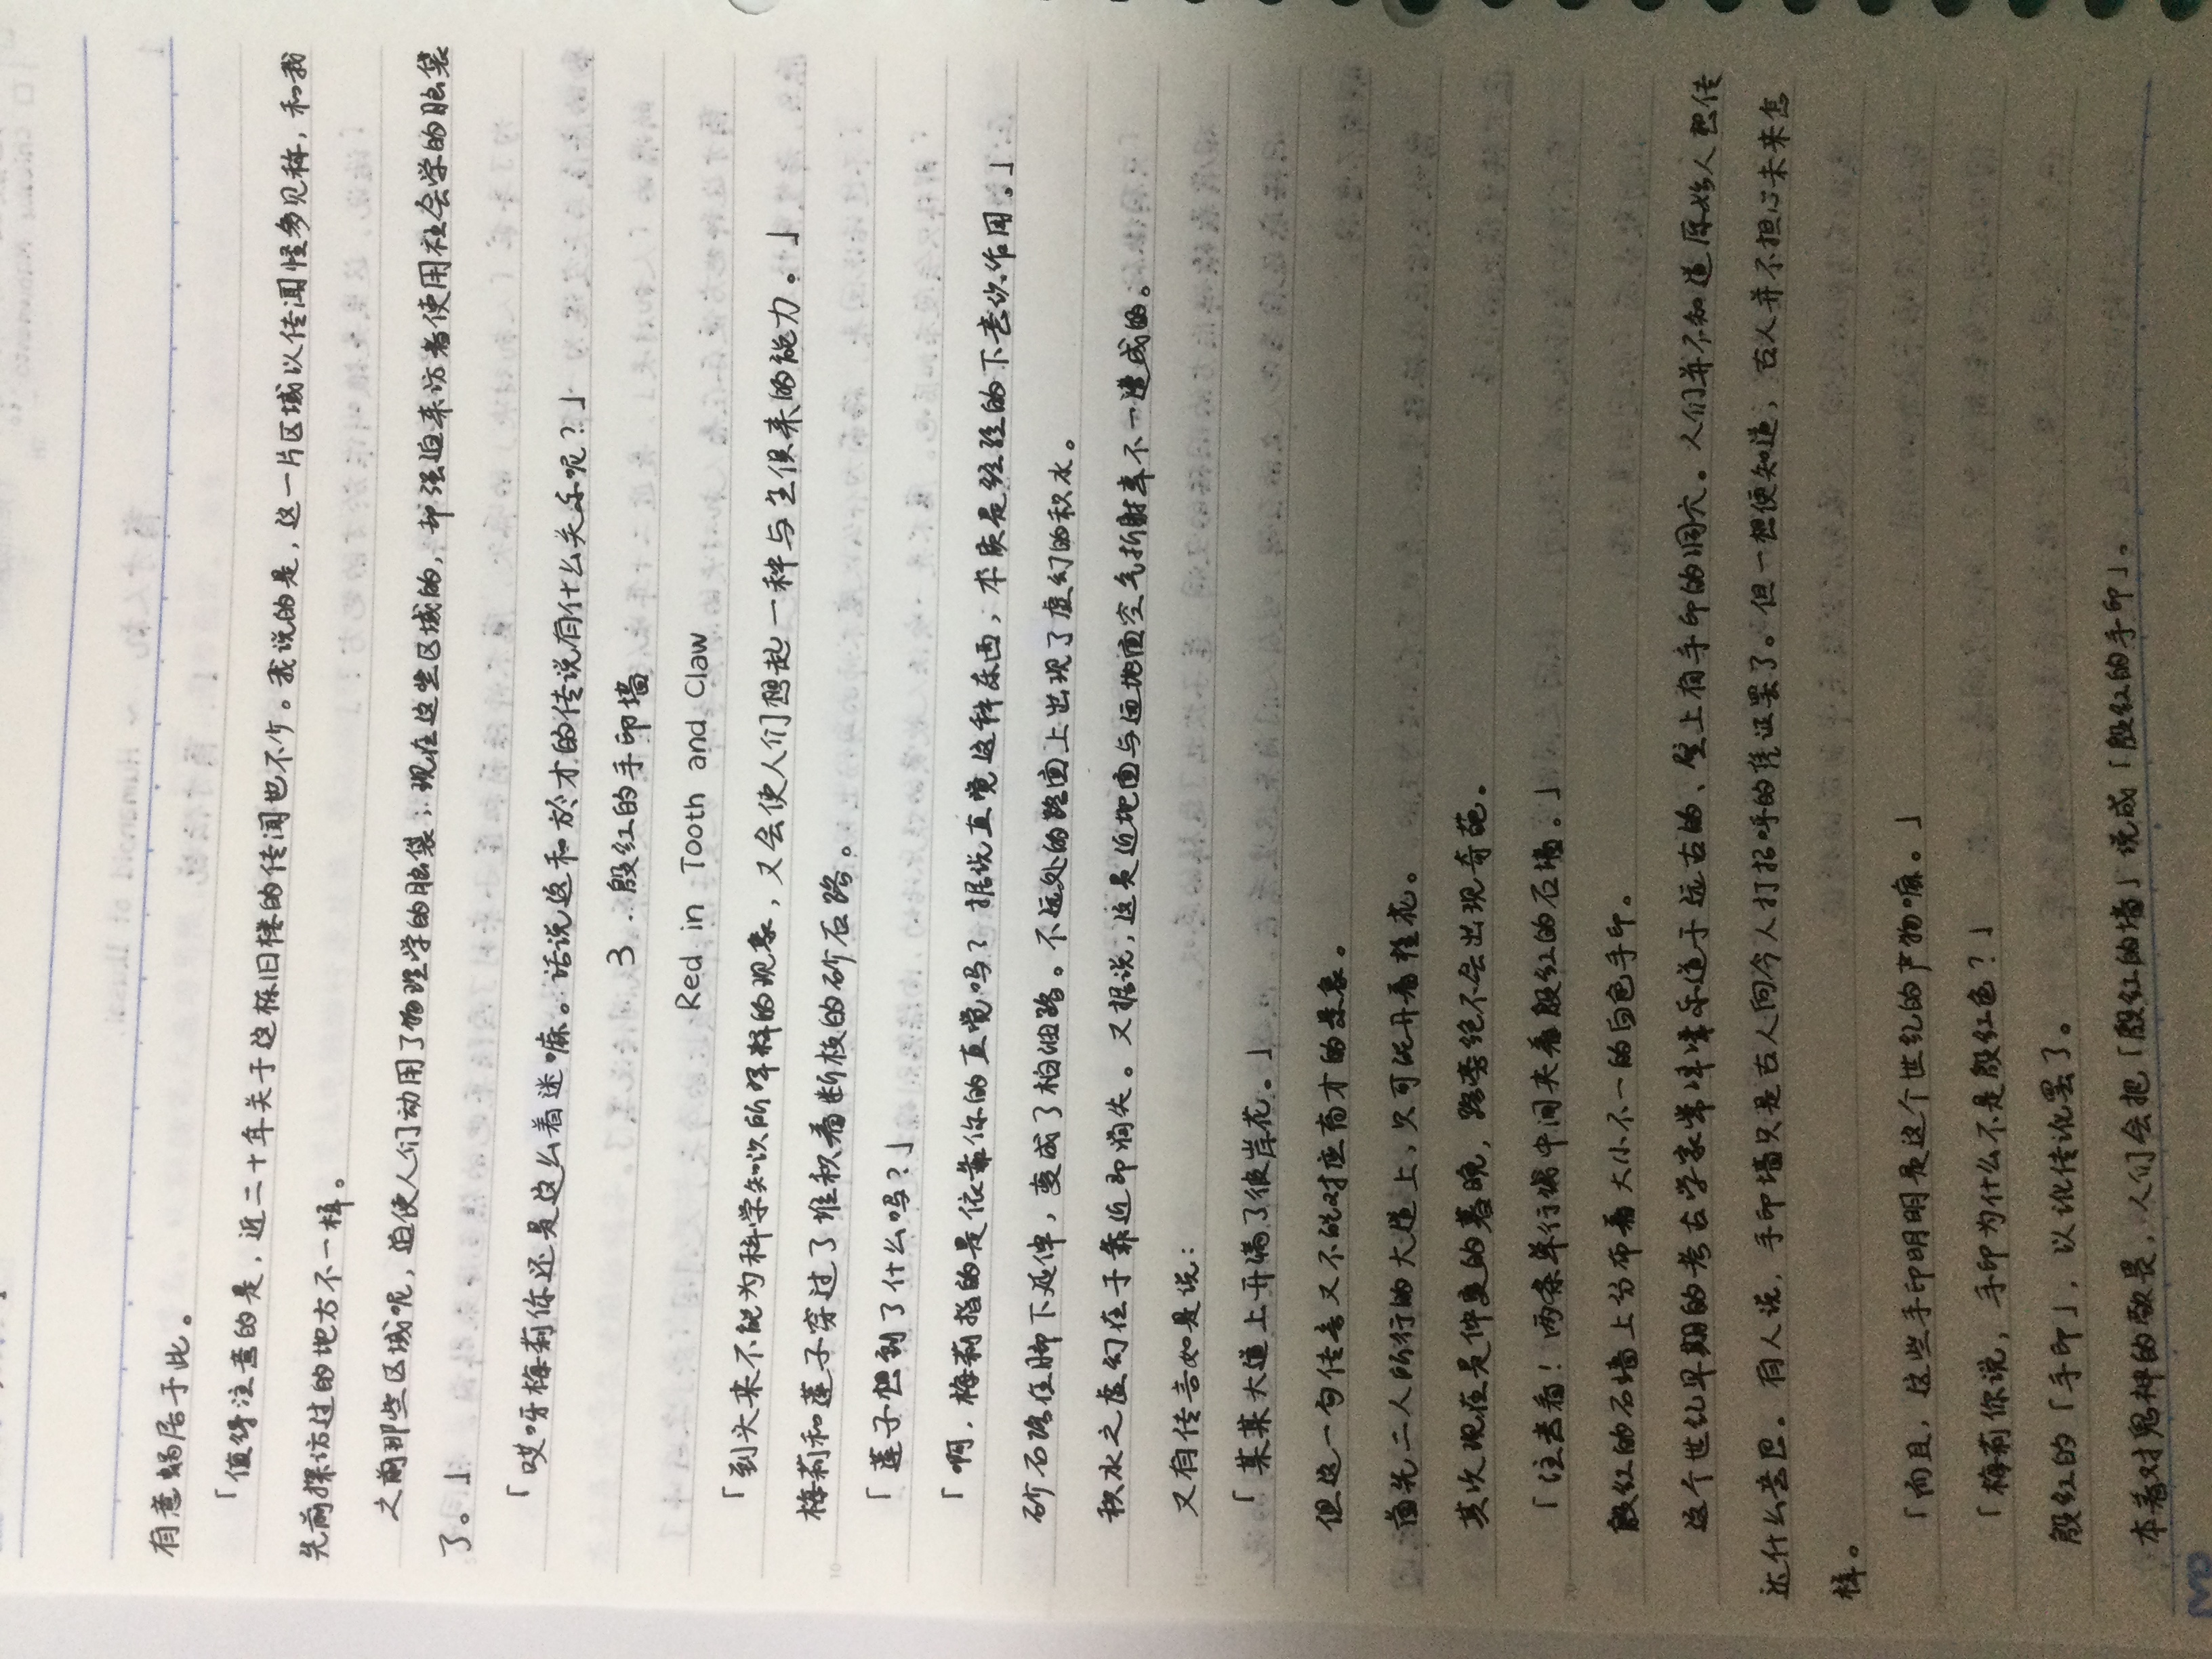 有意蜗居于此。
「值得注意的是，近二十年关于这栋旧楼的传闻也不少。我说的是，这一片区域以传闻怪多见称，和我
先前探访过的地方不一样。
之前那些区域呢，迫使人们动用了物理学的脑袋；现在这些区域的，却强迫来访者使用社会学的脑袋
了。」
「哎呀梅莉你还是这么着迷嘛。话说这和於才的传说有什么关系呢？」
3．殷红的手印墙
Red in Tooth and Claw
「到头来不能为科学知识所解释的现象，又会使人们想起一种与生俱来的能力。」
梅莉和莲子穿过了堆积着断枝的砂石路。
「莲子想到了什么吗？」
「啊，梅莉指的是依靠你的直觉吗？据说直觉这种东西，本质是经验的下意识作用。」
砂石路在脚下延伸，变成了柏油路。不远处的路面上出现了虚幻的积水。
积水之虚幻在于靠近即消失。又据说，这是近地面与远地面空气折射率不一造成的。
又有传言如是说：
「某某大道上开满了彼岸花。」
但这一句传言又不能对应育才的景象。
首先二人所行的大道上，只可能开着桂花。
其次现在是仲夏的暮晚，路旁绝不会出现奇葩。
「注意看！两条单行线中间夹着殷红的石墙。」
殷红的石墙上分布着大小不一的白色手印。
这个世纪早期的考古学家常津津乐道于远古的、壁上有手印的洞穴。人们并不知道原始人想传
达什么意思。有人说，手印墙只是古人向今人打招呼的凭证罢了。但一想便知道，古人并不担心未来怎
样。
「而且，这些手印明明是这个世纪的产物嘛。」
「梅莉你说，手印为什么不是殷红色？」
殷红的「手印」，以讹传讹罢了。
本着对鬼神的敬畏，人们会把「殷红的墙」说成「殷红的手印」。